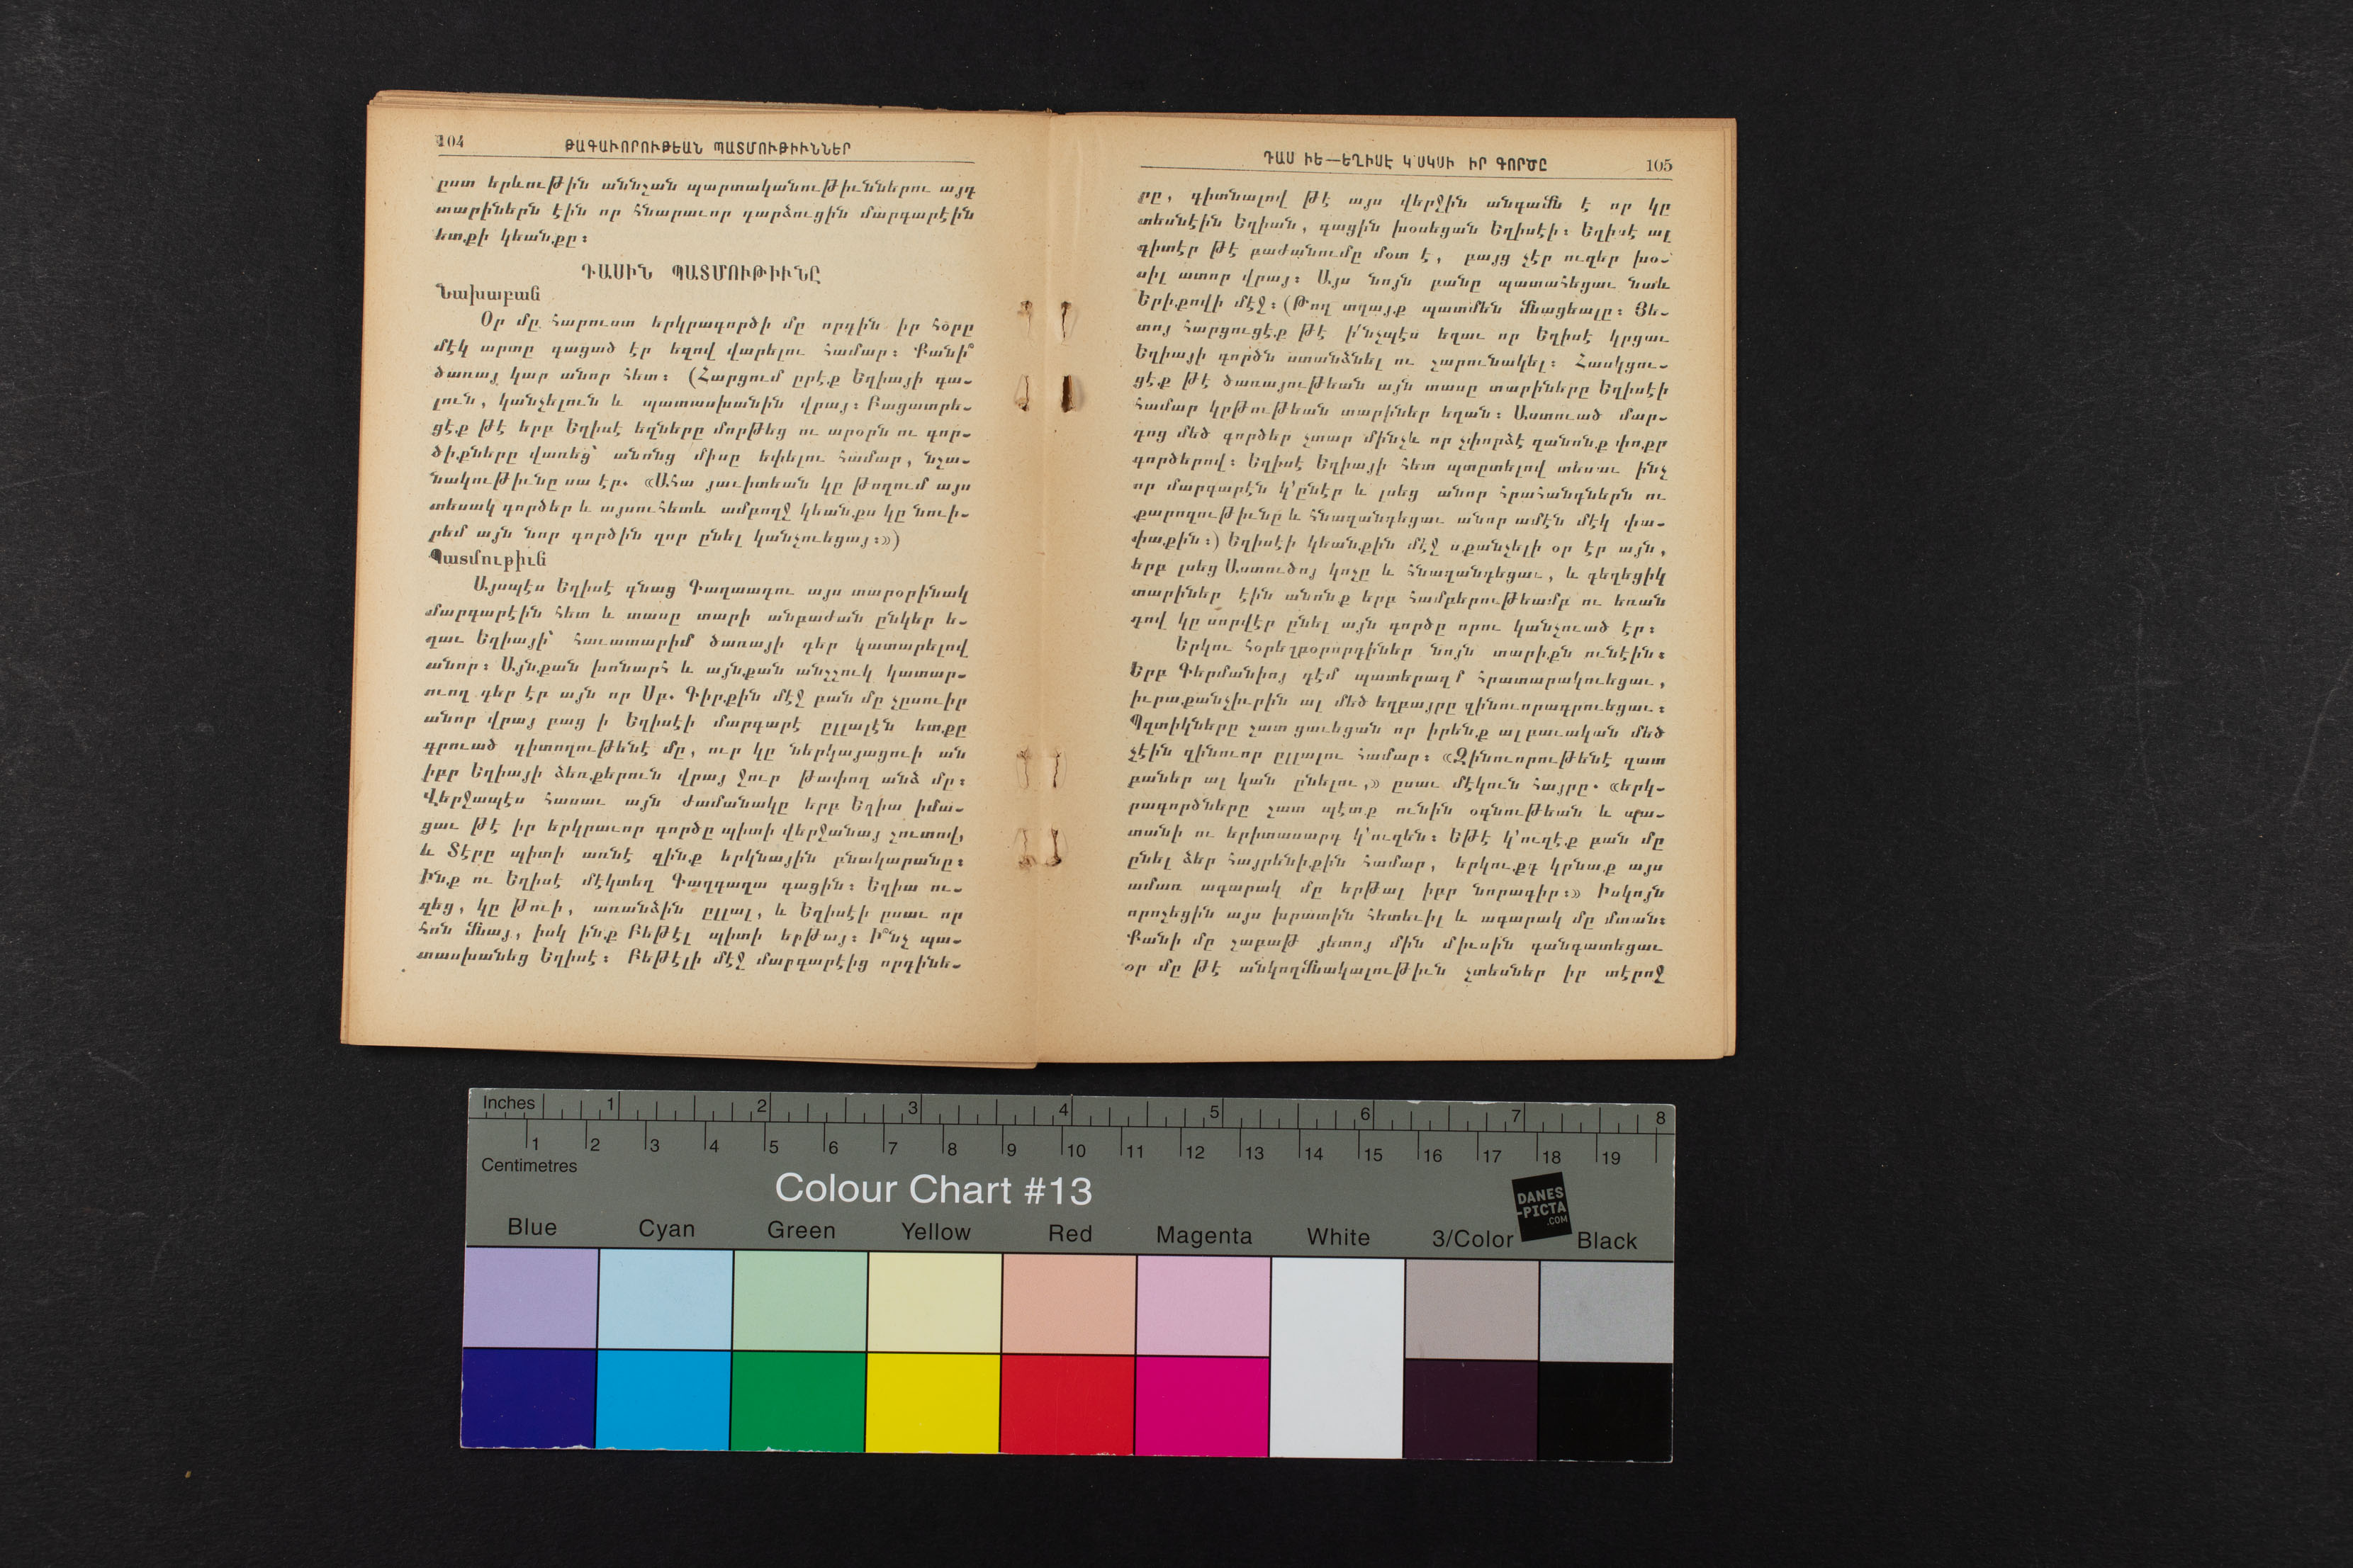 104
ԹԱԳԱՒՈՐՈՒԹԵԱՆ ՊԱՏՄՈՒԹԻՒՆՆԵՐ
ըստ երևութին աննշան պարտականութիւններու այդ
տարիներն էին որ հնարաւոր դարձուցին մարգարէին
ետքի կեանքը։
ԴԱՍԻՆ ՊԱՏՄՈՒԹԻՒՆԸ
Նախաբան
Օր մը հարուստ երկրագործի մը որդին իր հօրը
մէկ արտը գացած էր եզով վարելու համար։ Քանի՞
ծառայ կար անոր հետ։ (Հարցում ըրէք Եղիայի գա-
լուն, կանչելուն և պատասխանին վրայ։ Բացատրե-
ցէք թէ երբ Եղիսէ եզները մորթեց ու արօրն ու գոր-
ծիքները վառեց՝ անոնց միսը եփելու համար, նշա-
նակութիւնը սա էր. «Ահա յաւիտեան կը թողում այս
տեսակ գործեր և այսուհետև ամբողջ կեանքս կը նուի-
րեմ այն նոր գործին զոր ընել կանչուեցայ։»)
Պատմութիւն
Այսպէս Եղիսէ գնաց Գաղաադու այս տարօրինակ
մարգարէին հետ և տասը տարի անբաժան ընկեր ե-
ղաւ Եղիայի՝ հաւատարիմ ծառայի դեր կատարելով
անոր։ Այնքան խոնարհ և այնքան անշշուկ կատար-
ուող դեր էր այն որ Սբ. Գիրքին մէջ բան մը չըսուիր
անոր վրայ բաց ի Եղիսէի մարգարէ ըլլալէն ետքը
գրուած դիտողութենէ մը, ուր կը ներկայացուի ան
իբր Եղիայի ձեռքերուն վրայ ջուր թափող անձ մը։
Վերջապէս հասաւ այն ժամանակը երբ Եղիա իմա-
ցաւ թէ իր երկրաւոր գործը պիտի վերջանայ շուտով,
և Տէրը պիտի առնէ զինք երկնային բնակարանը։
Ինք ու Եղիսէ մէկտեղ Գաղգաղա գացին։ Եղիա ու-
զեց, կը թուի, առանձին ըլլալ, և Եղիսէի ըսաւ որ
հոն մնայ, իսկ ինք Բեթէլ պիտի երթայ։ Ի՞նչ պա-
տասխանեց Եղիսէ։ Բեթէլի մէջ մարգարէից որդինե-
ԴԱՍ ԻԵ—ԵՂԻՍԷ Կ՚ՍԿՍԻ ԻՐ ԳՈՐԾԸ
105
րը, գիտնալով թէ այս վերջին անգամն է որ կը
տեսնէին Եղիան, գացին խօսեցան Եղիսէի։ Եղիսէ ալ
գիտէր թէ բաժանումը մօտ է, բայց չէր ուզեր խօ-
սիլ ատոր վրայ։ Այս նոյն բանը պատահեցաւ նաև
Երիքովի մէջ։ (Թող տղայք պատմեն մնացեալը։ Յե-
տոյ հարցուցէք թէ ի՛նչպէս եղաւ որ Եղիսէ կրցաւ
Եղիայի գործն ստանձնել ու շարունակել։ Հասկցու-
ցէք թէ ծառայութեան այն տասը տարիները Եղիսէի
համար կրթութեան տարիներ եղան։ Աստուած մար-
դոց մեծ գործեր չտար մինչև որ չփորձէ զանոնք փոքր
գործերով։ Եղիսէ Եղիայի հետ պտըտելով տեսաւ ինչ
որ մարգարէն կ՚ընէր և լսեց անոր հրահանգներն ու
քարոզութիւնը և հնազանդեցաւ անոր ամէն մէկ փա-
փաքին։) Եղիսէի կեանքին մէջ սքանչելի օր էր այն,
երբ լսեց Աստուծոյ կոչը և հնազանդեցաւ, և գեղեցիկ
տարիներ էին անոնք երբ համբերութեամբ ու եռան
դով կը սորվէր ընել այն գործը որու կանչուած էր։
Երկու հօրեղբօրորդիներ նոյն տարիքն ունէին։
Երբ Գերմանիոյ դէմ պատերազմ հրատարակուեցաւ,
իւրաքանչիւրին ալ մեծ եղբայրը զինուորագրուեցաւ։
Պզտիկները շատ ցաւեցան որ իրենք ալ բաւական մեծ
չէին զինուոր ըլլալու համար։ «Զինուորութենէ զատ
բաներ ալ կան ընելու,» ըսաւ մէկուն հայրը. «երկ-
րագործները շատ պէտք ունին օգնութեան և պա-
տանի ու երիտասարդ կ՚ուզեն։ Եթէ կ՚ուզէք բան մը
ընել ձեր հայրենիքին համար, երկուքդ կրնաք այս
ամառ ագարակ մը երթալ իբր նորագիր։» Իսկոյն
որոշեցին այս խրատին հետեւիլ և ագարակ մը մտան։
Քանի մը շաբաթ յետոյ մին միւսին գանգատեցաւ
օր մը թէ անկողմնակալութիւն չտեսներ իր տէրոջ
Inches 1 2 3 4 5 6 7 8
1 2 3 4 5 6 7 8 9 10 11 12 13 14 15 16 17 18 19
Centimetres
Colour Chart #13
DANES
-PICTA
.COM
Blue Cyan Green Yellow Red Magenta White 3/Color Black